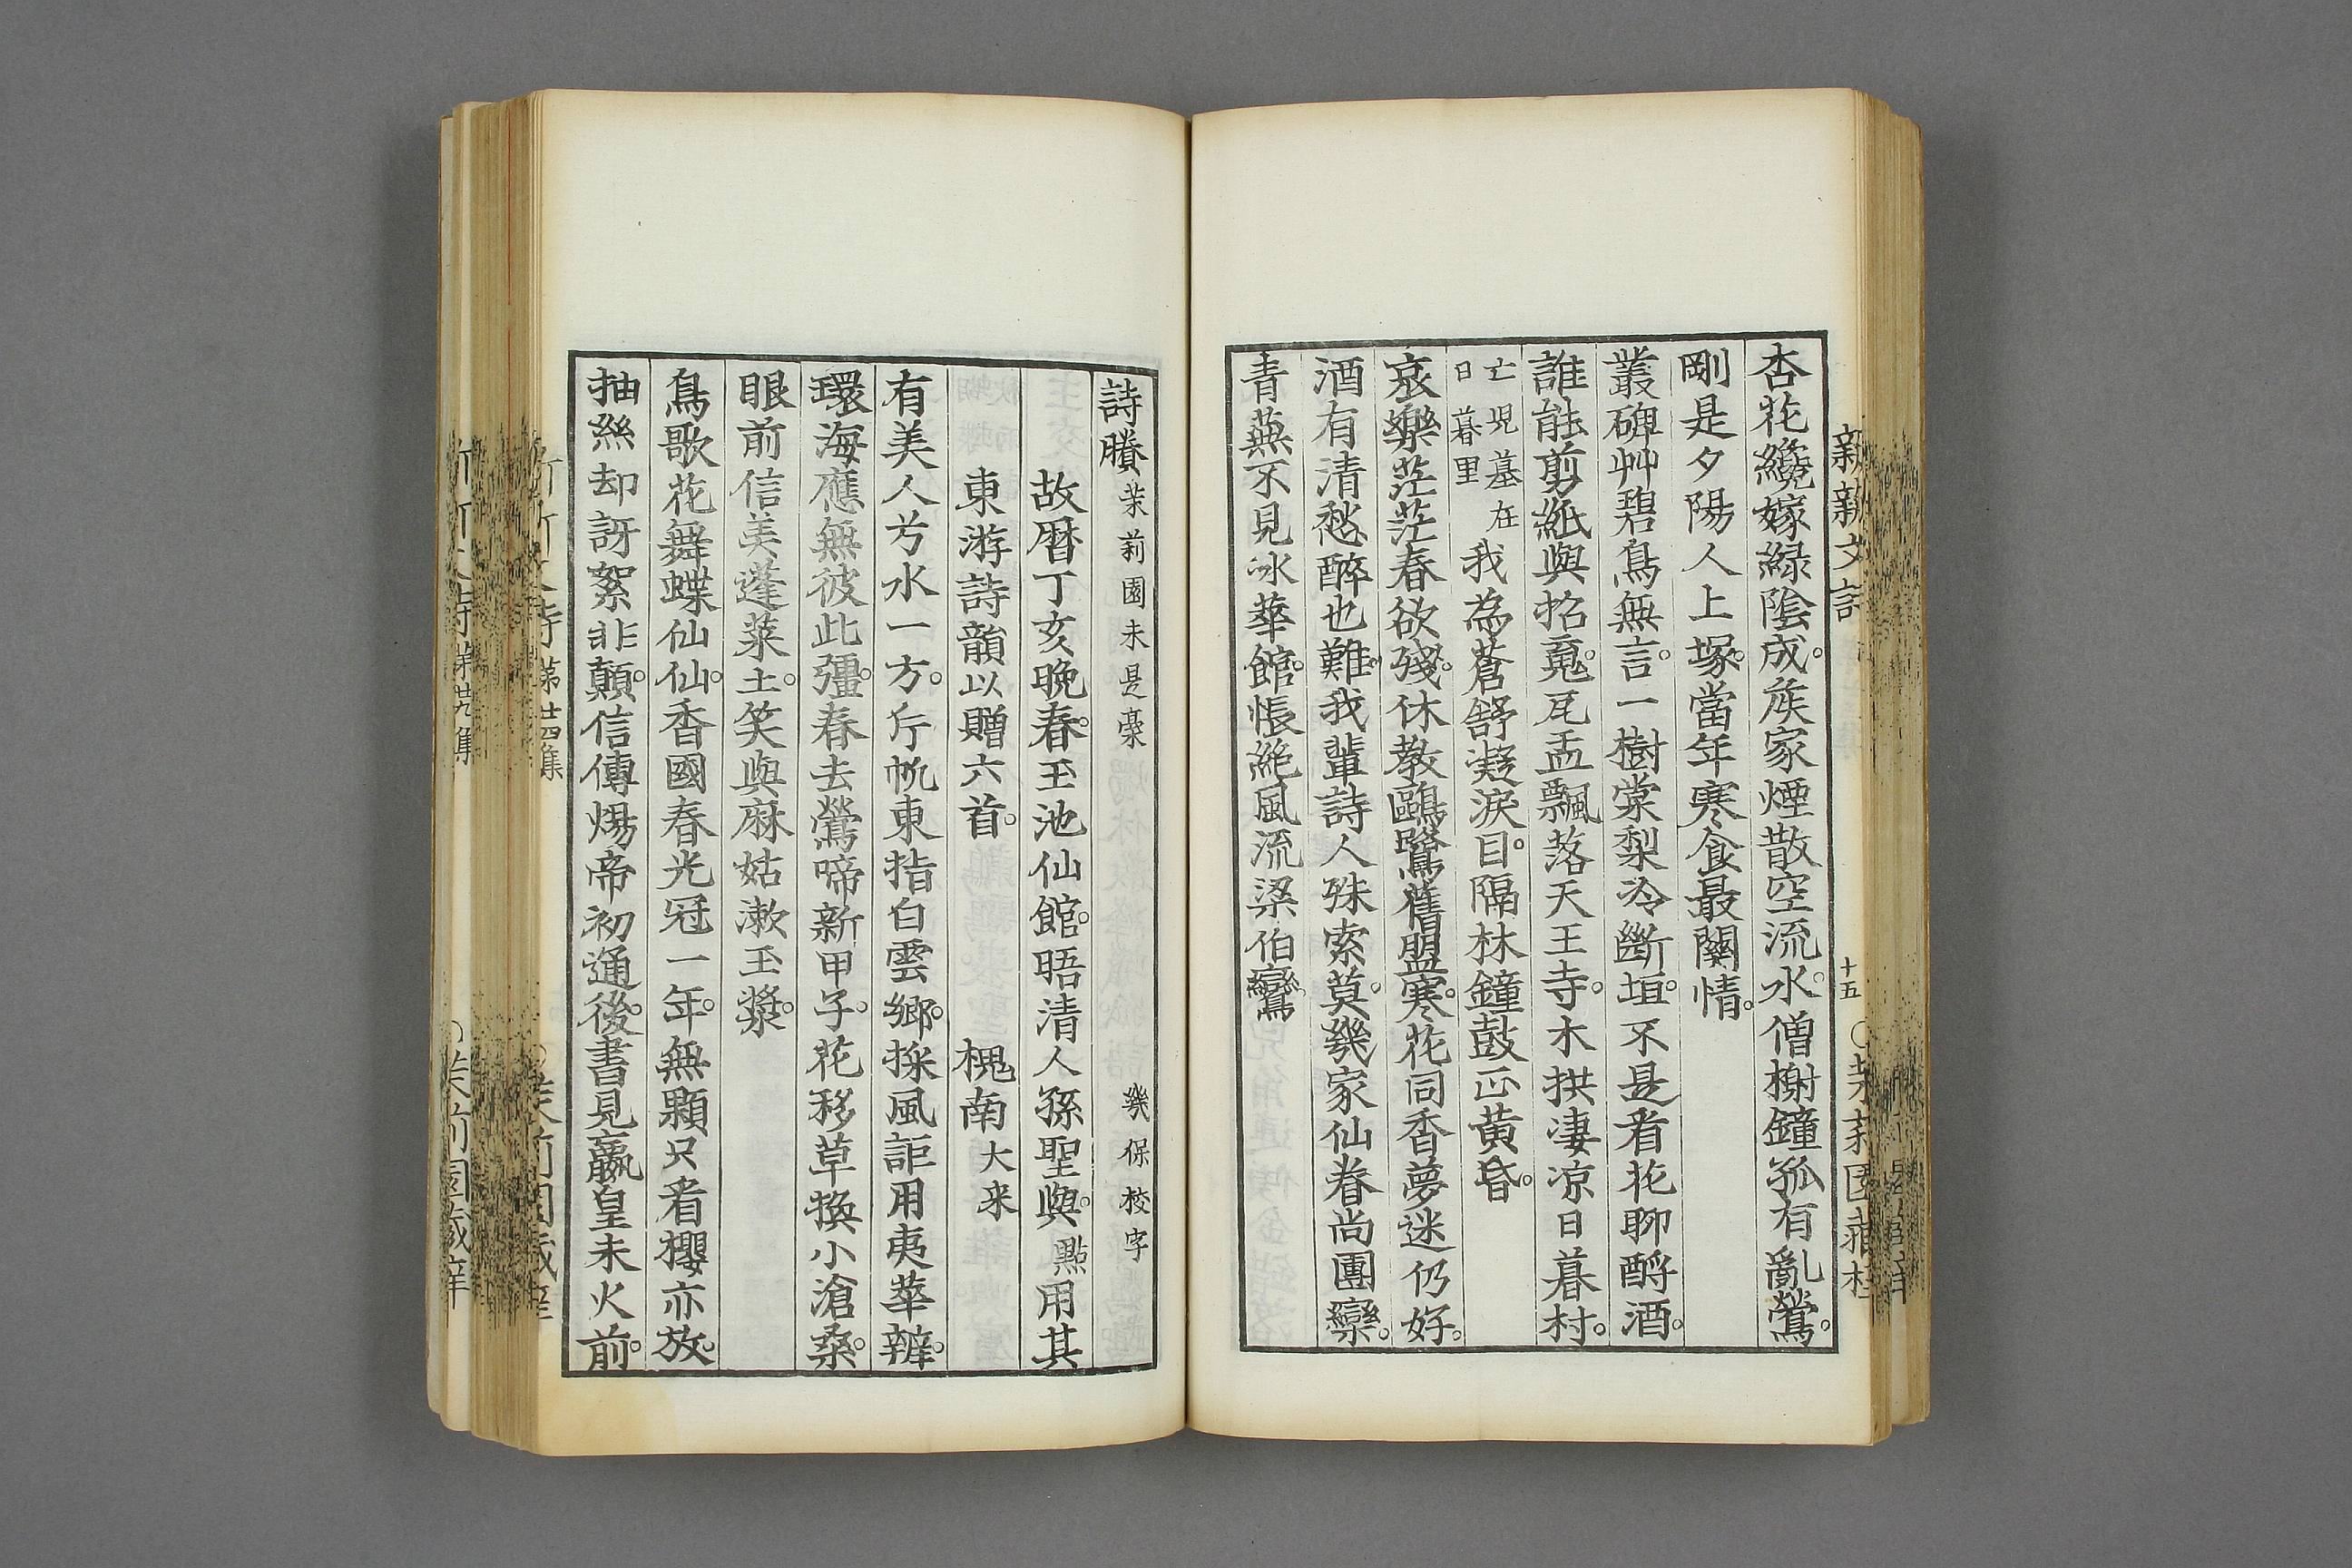 杏花纔嫁緑陰成。族家煙散空流水。僧榭鐘孤有亂鶯。
剛是夕陽人上塚。當年寒食最關情。
叢碑艸碧鳥無言。一樹棠梨冷斷垣。不是看花聊酹酒。
誰能剪紙與招䰟。瓦盂飄落天王寺。木拱凄凉日暮村。
亡児墓在
日暮里
我為蒼舒凝淚目。隔林鐘鼓正黄昏。
哀樂茫茫春欲殘。休教鷗鷺舊盟寒。花同香夢迷仍好。
酒有清愁醉也難。我輩詩人殊索莫。幾家仙眷尚團欒。
青蕪不見冰華館。悵絶風流梁伯鸞。
新新文詩
十五
詩賸
茉莉園未是稾
幾保校字
故暦丁亥晚春。玉池仙館。晤清人孫聖與。點用其
東游詩韻以贈六首。
槐南大来
有美人兮水一方。斤帆東指白雲鄉。採風詎用夷華辨。
環海應無彼此彊。春去鶯啼新甲子。花移草換小滄桑。
眼前信美蓬萊土。笑與麻姑漱玉漿。
鳥歌花舞蝶仙仙。香國春光冠一年。無顆只看櫻亦放。
抽絲却訝絮非顛。信傳煬帝初通後。書見嬴皇未火前。
第廿四集
第廿九集